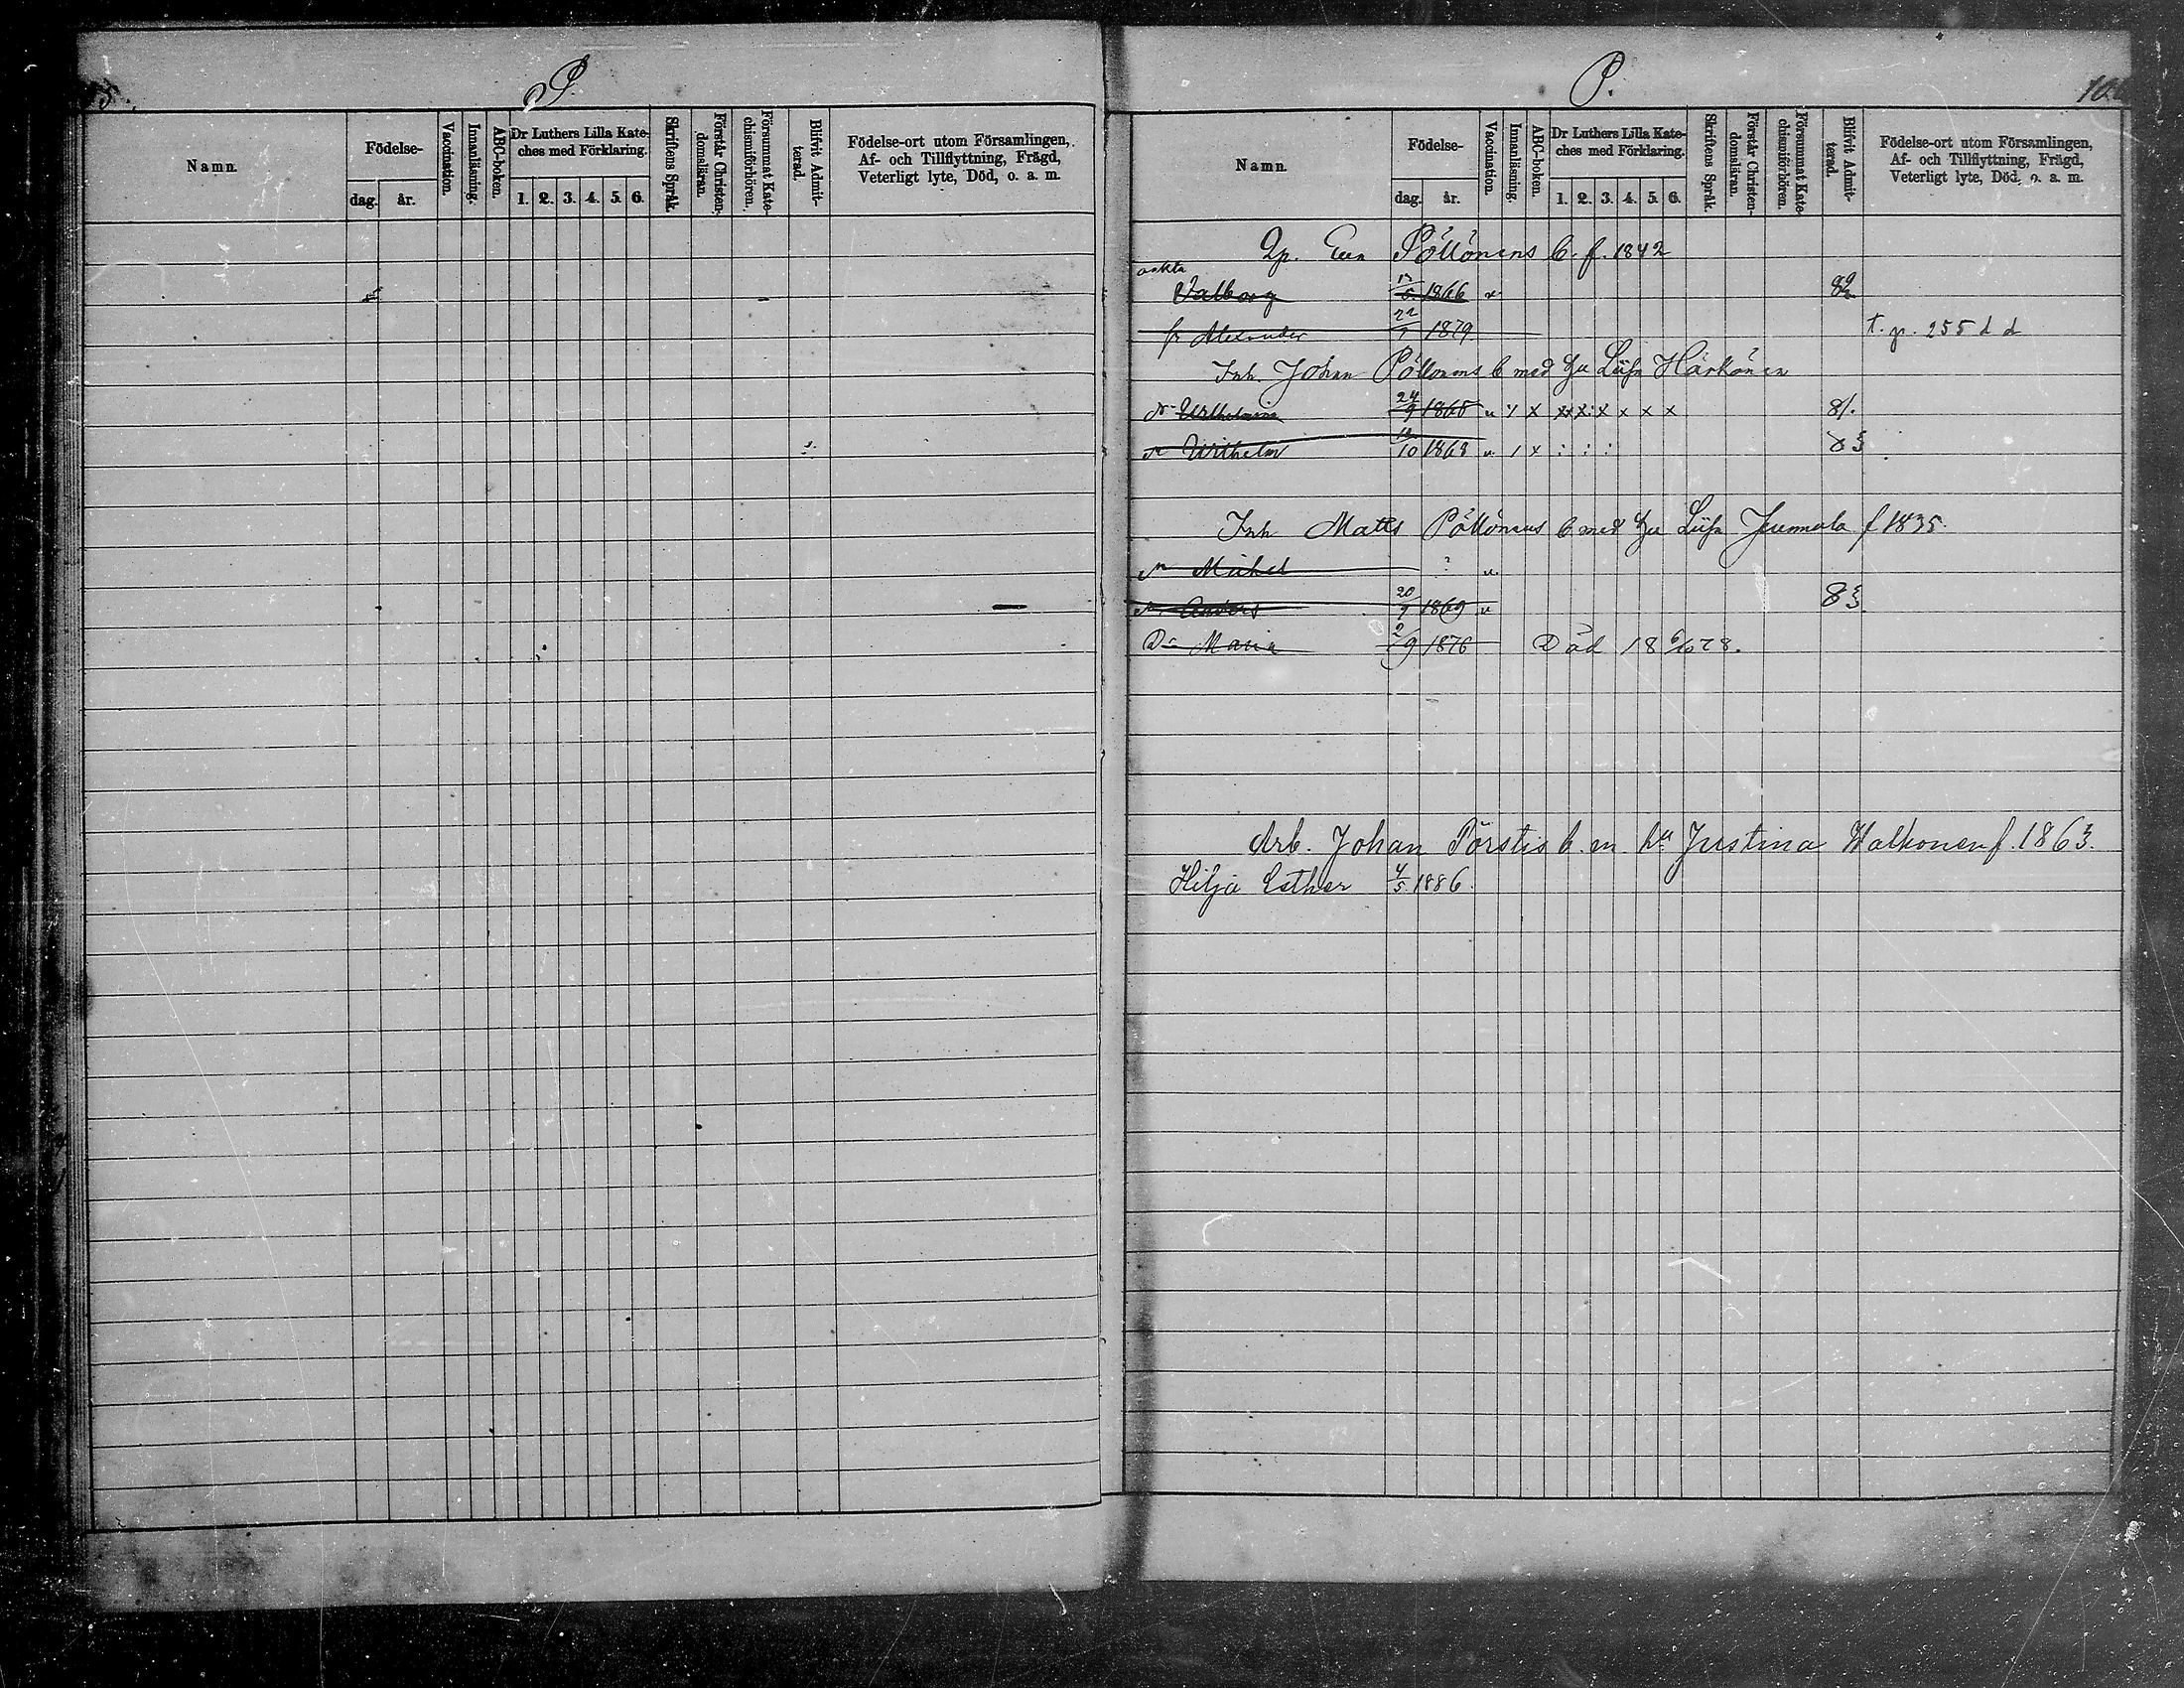 P.
Namn.
Födelse-
dag. år.
Vaccination.
Innanläsning.
ABC-boken.
Dr Luthers Lilla Kate-
ches med Förklaring.
1. 2. 3. 4. 5. 6.
Skriftens Språk.
Förstår Christen-
domsläran.
Försummat Kate-
chismiförhören.
Blifvit Admit-
terad.
Födelse-ort utom Församlingen,
Af- och Tillflyttning, Frägd,
Veterligt lyte, Död, o. a. m.
P.
Namn.
Födelse-
dag. år.
Vaccination.
Innanläsning.
ABC-boken.
Dr Luthers Lilla Kate-
ches med Förklaring.
1. 2. 3. 4. 5. 6.
Skriftens Språk.
Förstår Christen-
domsläran.
Försummat Kate-
chismiförhören.
Blifvit Admit-
terad.
Födelse-ort utom Församlingen,
Af- och Tillflyttning, Frägd,
Veterligt lyte, Död, o. a. m.
Eva Pöllönens b. f. 1842
oäkta
Valborg 1866 82
fr Alexander 1879 t. p. 255 d d
Inh. Johan Pöllönens b med hu Liisa Härkönen
Wilhelmina 24/9 1865 x x x x x x x 81.
Wilhelm 10 1868 x 83
Inh Matts Pöllönens b med hu Liisa Jummala f 1835.
Michel
Anders 20/9 1869 83
Dr Maria 2/9 1876 Död 18 6/10 78.
Arb. Johan Pörstis b. m. hu Justina Walkonen f. 1863.
Hilja Esther 4/5 1886.